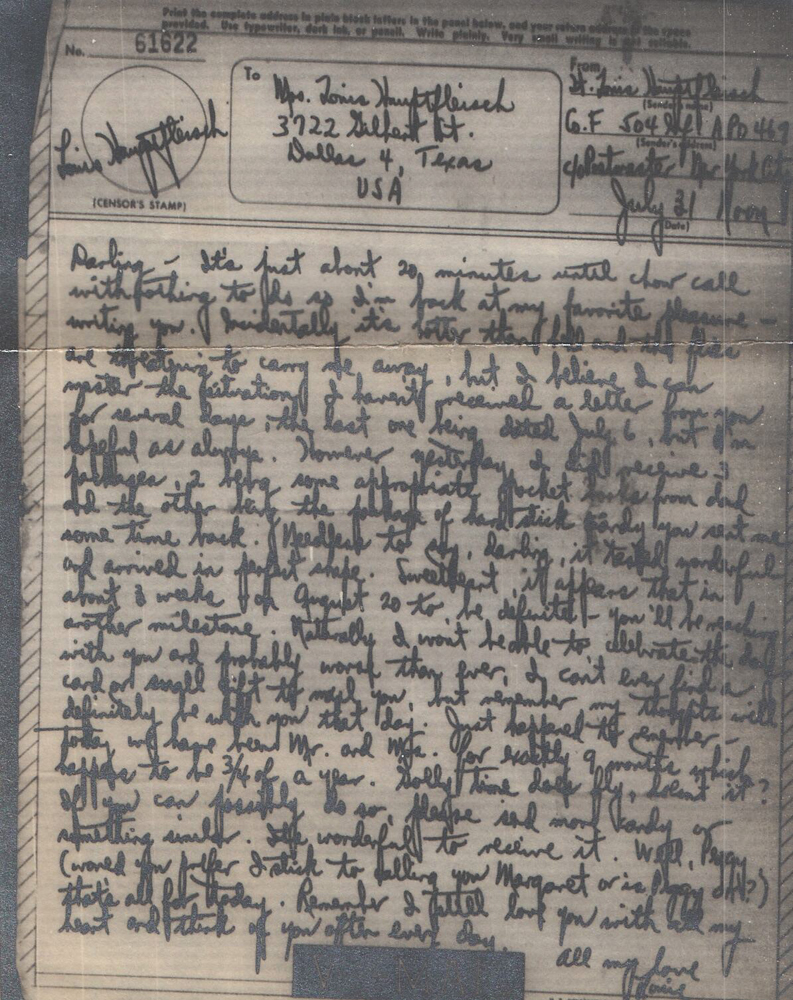 Print the complete address in plain block letters in the panel below, and your return address in the space
provided. Use typewriter, dark ink, or pencil. Write plainly. Very small writing is not suitable.
No. 61622
To
Mrs. Louis Hauptfleisch
3722 Gilbert St.
Dallas 4, Texas
USA
From
Lt. Louis Hauptfleisch
(Sender's name)
G.F 504 APO 469
(Sender's address)
c/o Postmaster New York City
July 31 Noon
(Date)
Louis Hauptfleisch
(CENSOR'S STAMP)
Darling – It's just about 20 minutes until chow call
with nothing to do so I'm back at my favorite pleasure –
writing you. Incidentally it's hotter than hell and the flies
are threatening to carry me away, but I believe I can
master the situation. I haven't received a letter from you
for several days, the last one being dated July 6, but I'm
hopeful as always. However yesterday I did receive 3
packages, 2 being some appropriate pocket books from dad
and the other being the package of hard stick candy you sent me
some time back. Needless to say, darling, it tasted wonderful
and arrived in perfect shape. Sweetheart, it appears that in
about 3 weeks – on August 20 to be definite – you'll be reaching
another milestone. Naturally I won't be able to celebrate the day
with you and probably worse than ever, I can't even find a
card or small gift to mail you, but remember my thoughts will
definitely be with you that day. Just happened to remember –
today we have been Mr. and Mrs. for exactly 9 months which
happens to be 3/4 of a year. Golly time does fly, doesn't it?
If you can possibly do so, please send more candy or
something similar. It's wonderful to receive it. Well, Peggy
(would you prefer I stick to calling you Margaret or is Peggy OK?)
that's all for today. Remember I love you with all my
heart and think of you often every day.
All my love
Louie